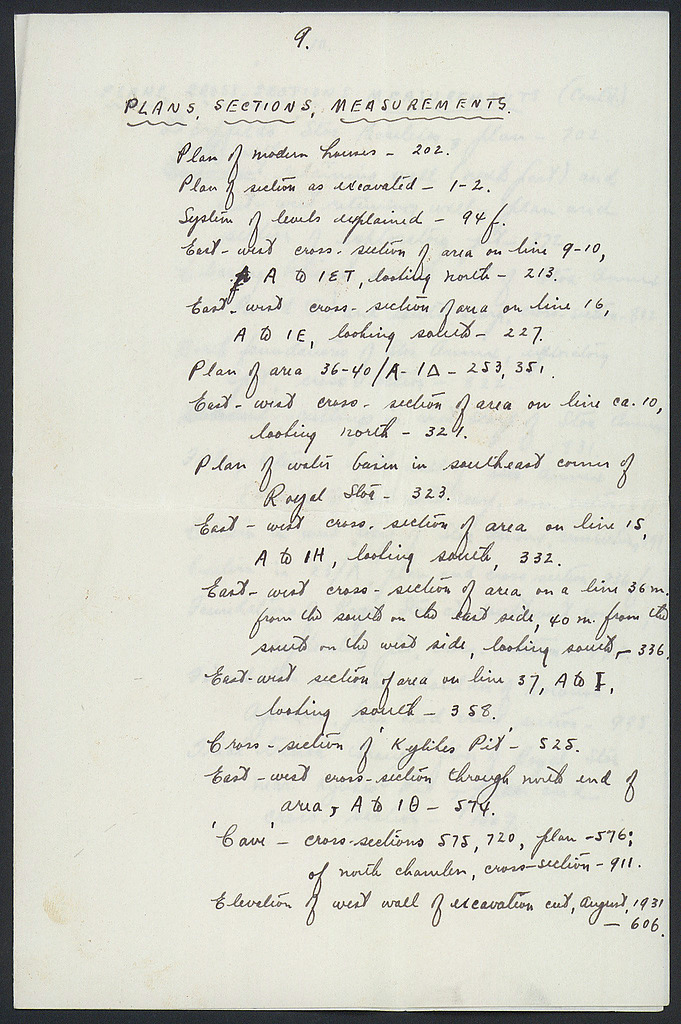 9.
PLANS, SECTIONS, MEASUREMENTS.
Plan of modern houses - 202.
Plan of section as excavated - 1-2.
System of levels explained - 94 f.
East-west cross-section of area on line 9-10,
A to IET, looking north - 213.
East-west cross-section of area on line 16,
A to IE, looking south - 227.
Plan of area 36-40/A-IΔ - 253, 351.
East-west cross-section of area on line ca. 10,
looking north - 321.
Plan of water basin in southeast corner of
Royal Stoa - 323.
East-west cross-section of area on line 15,
A to IH, looking south, 332.
East-west cross-section of area on a line 36 m.
from the south on the east side, 40 m. from the
south on the west side, looking south, - 336.
East-west section of area on line 37, A to I,
looking south - 358.
Cross-section of 'Kylikes Pit' - 525.
East-west cross-section through north end of
area, A to IΘ - 574.
'Cave' - cross-sections 575, 720, plan - 576;
of north chamber, cross-section - 911.
Elevation of west wall of excavation cut, August, 1931
- 606.